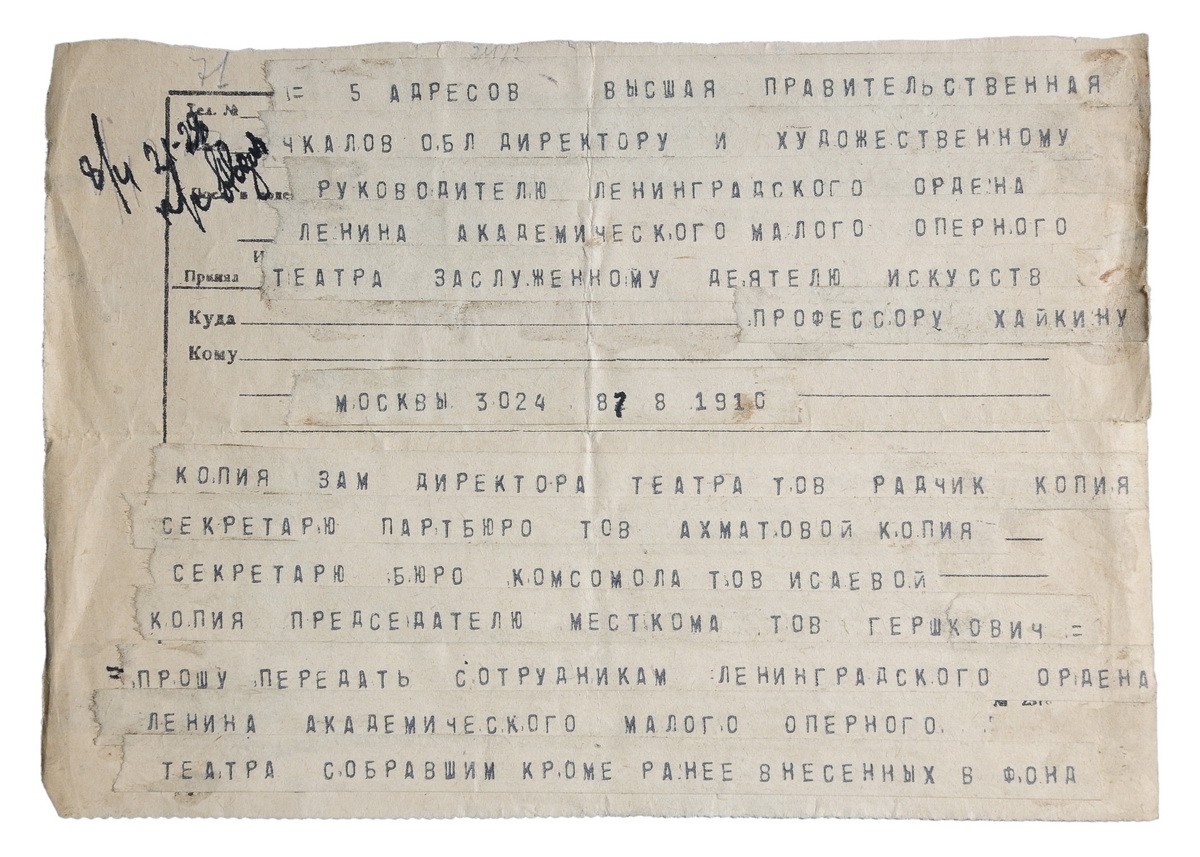 71
= 5 АДРЕСОВ ВЫСШАЯ ПРАВИТЕЛЬСТВЕННАЯ
Тел. №
ЧКАЛОВ ОБЛ ДИРЕКТОРУ И ХУДОЖЕСТВЕННОМУ
РУКОВОДИТЕЛЮ ЛЕНИНГРАДСКОГО ОРДЕНА
ЛЕНИНА АКАДЕМИЧЕСКОГО МАЛОГО ОПЕРНОГО
Принял ТЕАТРА ЗАСЛУЖЕННОМУ ДЕЯТЕЛЮ ИСКУССТВ
Куда ПРОФЕССОРУ ХАЙКИНУ
Кому
МОСКВЫ 3024 87 8 1910
КОПИЯ ЗАМ ДИРЕКТОРА ТЕАТРА ТОВ РАДЧИК КОПИЯ
СЕКРЕТАРЮ ПАРТБЮРО ТОВ АХМАТОВОЙ КОПИЯ
СЕКРЕТАРЮ БЮРО КОМСОМОЛА ТОВ ИСАЕВОЙ
КОПИЯ ПРЕДСЕДАТЕЛЮ МЕСТКОМА ТОВ ГЕРШКОВИЧ =
= ПРОШУ ПЕРЕДАТЬ СОТРУДНИКАМ ЛЕНИНГРАДСКОГО ОРДЕНА
ЛЕНИНА АКАДЕМИЧЕСКОГО МАЛОГО ОПЕРНОГО
ТЕАТРА СОБРАВШИМ КРОМЕ РАНЕЕ ВНЕСЕННЫХ В ФОНД